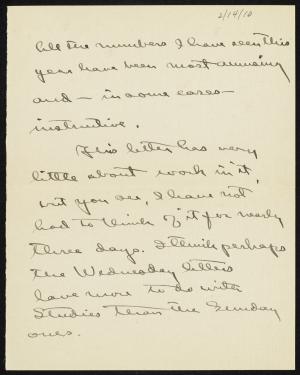 2/14/10
all the numbers I have seen this
year have been most amusing
and - in some cases -
instructive.
This letter has very
little about work in it,
but you see, I have not
had to think of it for nearly
three days. I think perhaps
the Wednesday letters
have more to do with
studies than the Sunday
ones.